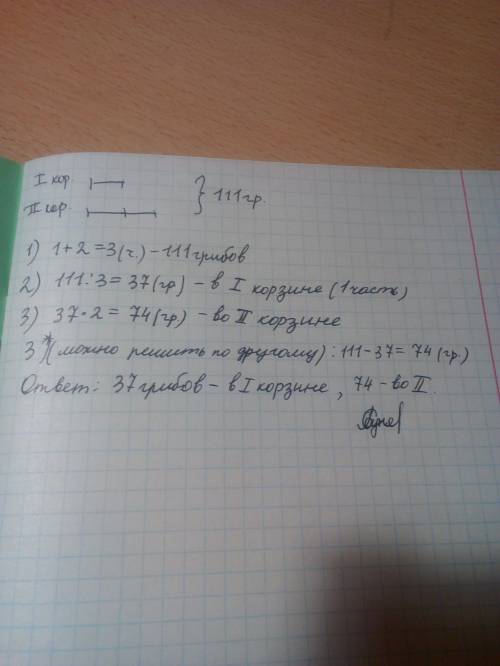 I кор.
II кор. } 111 гр.
1) 1+2=3(ч.) – 111 грибов
2) 111:3=37(гр) – в I корзине (1 часть)
3) 37·2=74(гр) – во II корзине
3*(можно решить по другому): 111-37=74(гр.)
Ответ: 37 грибов – в I корзине, 74 – во II.